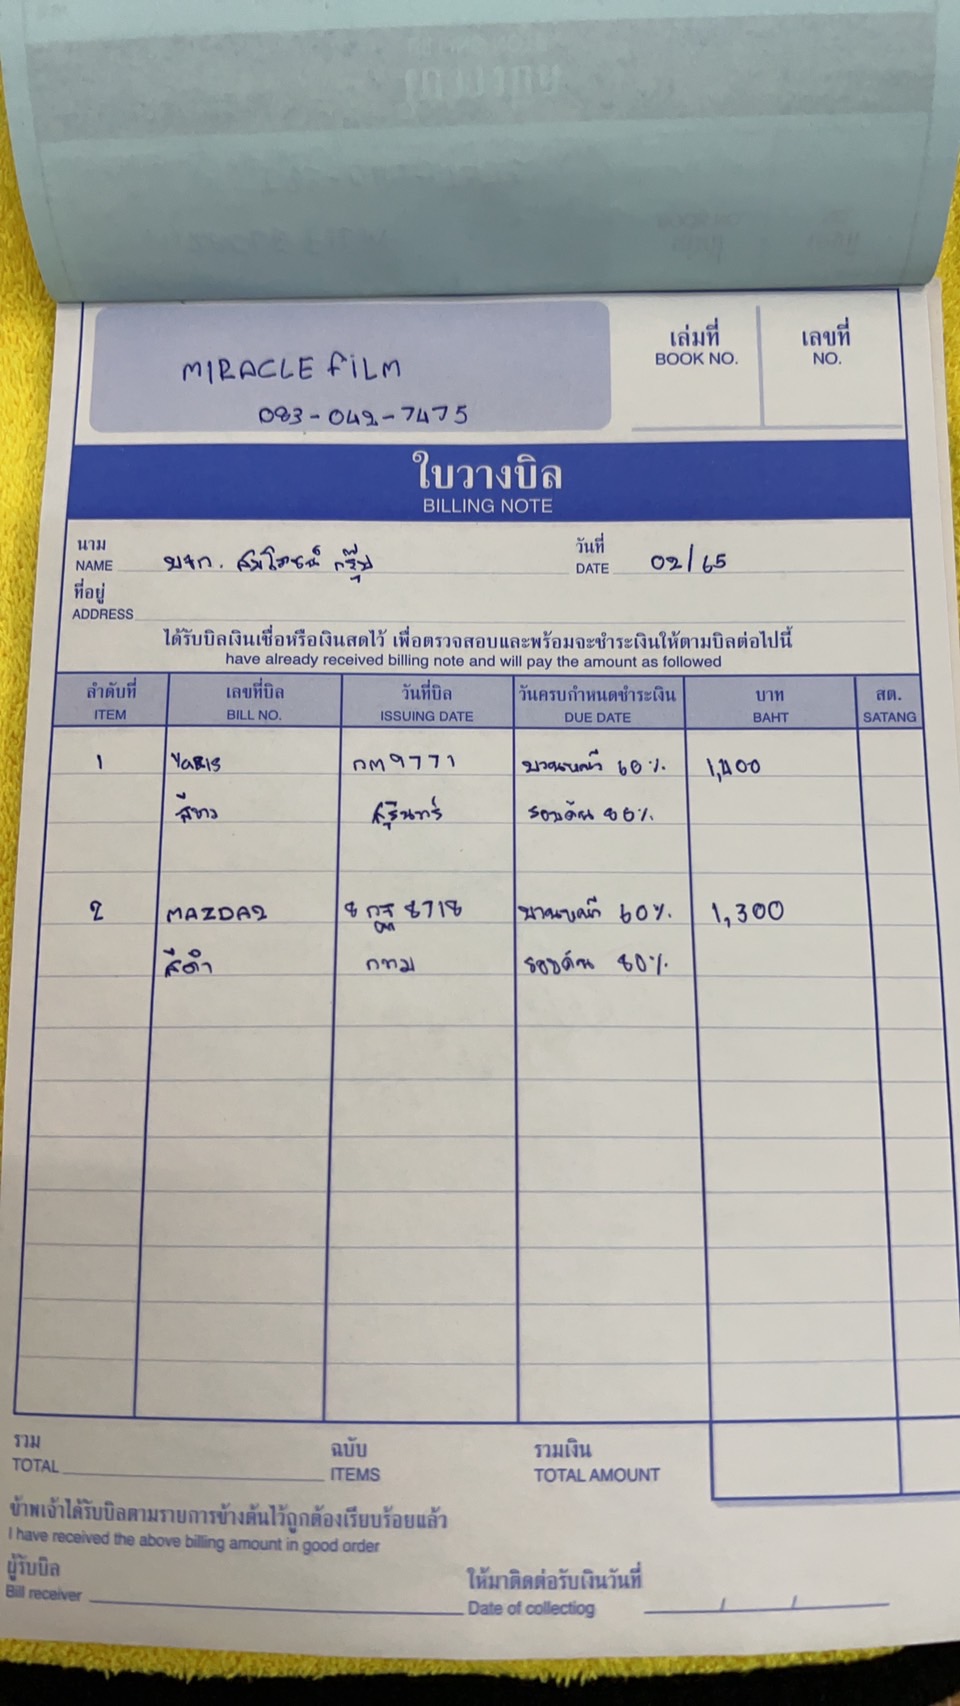 MIRACLE FILM
083-042-7475
เล่มที่
BOOK NO.
เลขที่
NO.
ใบวางบิล
BILLING NOTE
นาม
NAME
บจก. สมโภชน์ กรุ๊ป
วันที่
DATE
02/65
ที่อยู่
ADDRESS
ได้รับบิลเงินเชื่อหรือเงินสดไว้ เพื่อตรวจสอบและพร้อมจะชำระเงินให้ตามบิลต่อไปนี้
have already received billing note and will pay the amount as followed
ลำดับที่ เลขที่บิล วันที่บิล วันครบกำหนดชำระเงิน บาท สต.
ITEM BILL NO. ISSUING DATE DUE DATE BAHT SATANG
1 YARIS กต 9771 บานหน้า 60% 1,400
สีขาว สุรินทร์ รอบคัน 80%
2 MAZDA2 8718 บานหน้า 60% 1,300
สีดำ กทม รอบคัน 80%
รวม ฉบับ รวมเงิน
TOTAL ITEMS TOTAL AMOUNT
ข้าพเจ้าได้รับบิลตามรายการข้างต้นไว้ถูกต้องเรียบร้อยแล้ว
I have received the above billing amount in good order
ผู้รับบิล
Bill receiver
ให้มาติดต่อรับเงินวันที่
Date of collectiog